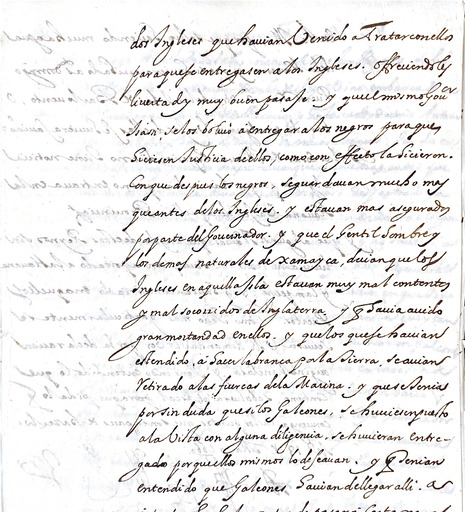 dos Ingleses que havian Venido a Tratar con ellos
para que se entregasen a los Ingleses. Offreciendoles
livertad y muy buen pasaje. y que el mismo Gour
se los bolvio a entregar a los negros para que
hiciesen Justicia de ellos, como con effecto la hicieron.
Con que despues los negros, se guardavan mucho mas
que antes de los Ingleses. y estavan mas asegurados
por parte del Governador. y que el Gentil hombre y
los demas naturales de Xamayca, decian que los
Ingleses en aquella Isla estavan muy mal contentos
y mal socorridos de Inglaterra. y q havia avido
gran mortandad en ellos. y que los que se havian
estendido, a hacer labranca por la tierra, se avian
retirado a las fuercas de la Marina. y que se tenia
por sin duda que si los Galeones, se huviesen puesto
a la Vista con alguna diligencia, se huvieran entre-
gado por que ellos mismos lo deseavan. y q tenian
entendido que Galeones havian de llegar alli.